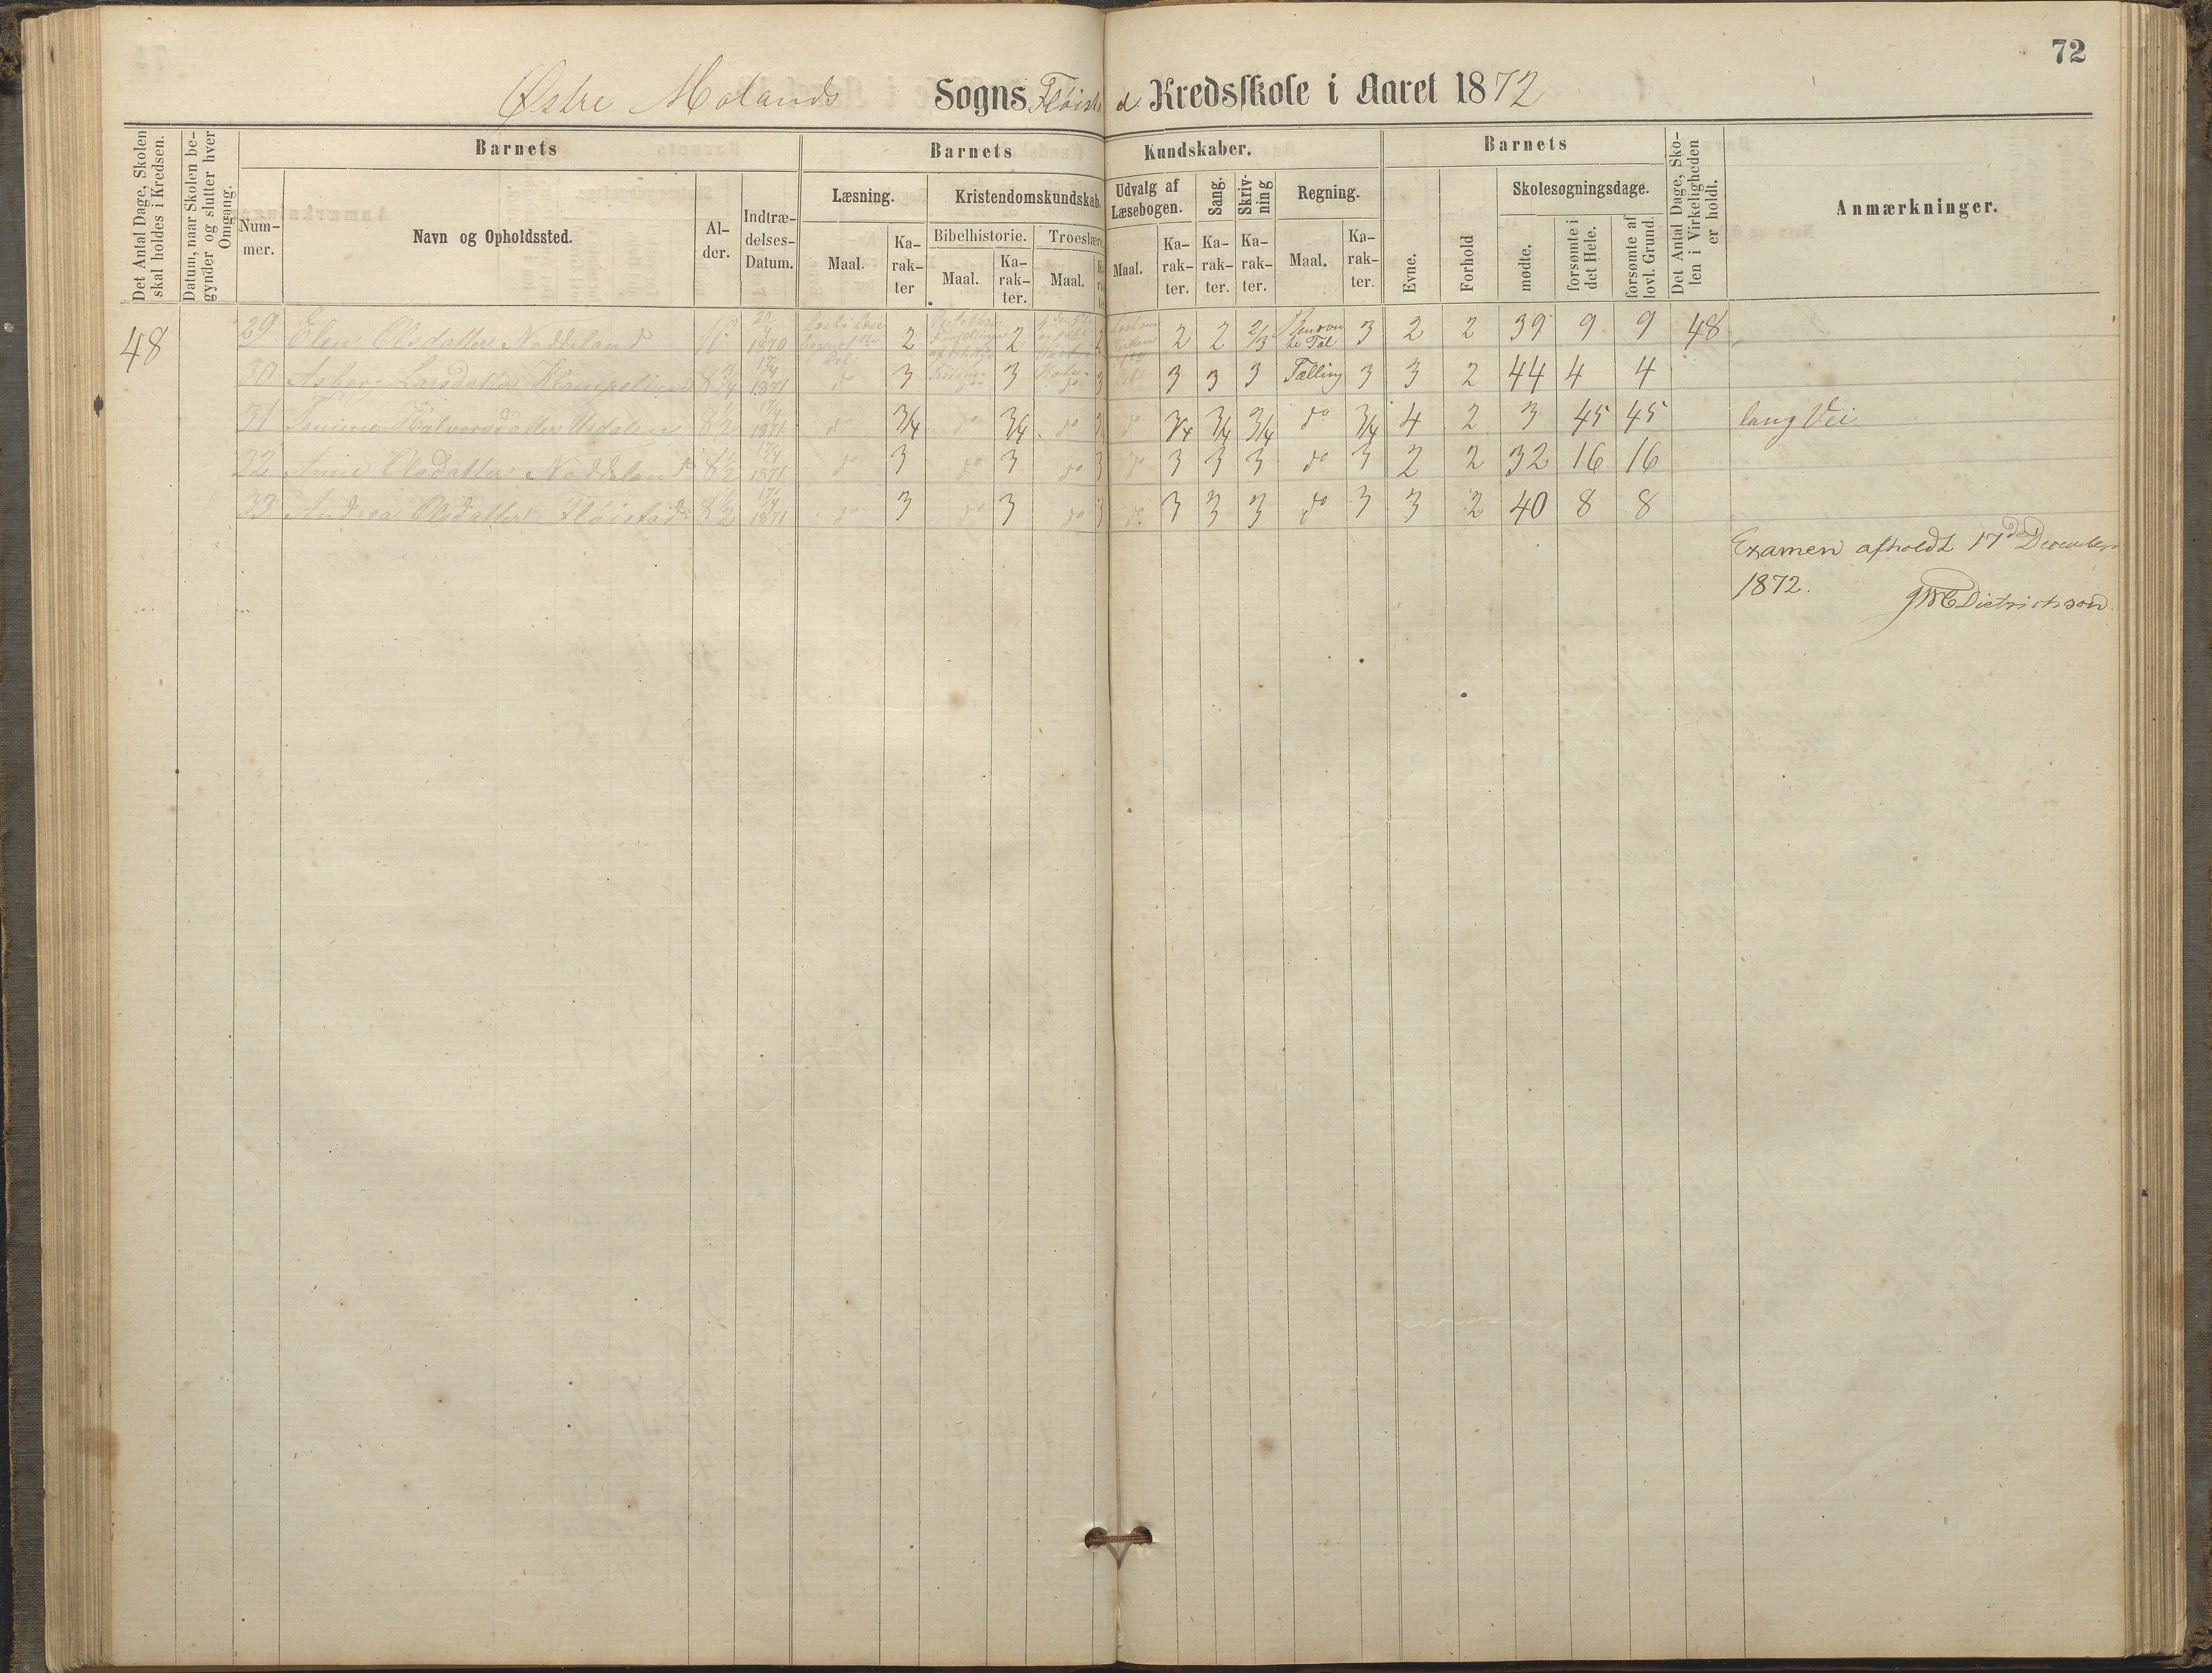 72
Østre Molands Sogns Fløistad Kredsskole i Aaret 1872
Det Antal Dage, Skolen skal holdes i Kredsen.
Datum, naar Skolen begynder og slutter hver Omgang.
Barnets
Nummer.
Navn og Opholdssted.
Alder.
Indtrædelses-Datum.
Barnets Kundskaber.
Læsning.
Maal.
Karakter
Kristendomskundskab.
Bibelhistorie.
Maal.
Karakter.
Troeslære.
Maal.
Udvalg af Læsebogen.
Maal.
Karakter.
Sang.
Karakter.
Skrivning
Karakter.
Regning.
Maal.
Karakter.
Barnets
Evne.
Forhold
Skolesøgningsdage.
mødte.
forsømte i det Hele.
forsømte af lovl. Grund.
Det Antal Dage, Skolen i Virkeligheden er holdt.
Anmærkninger.
48 29 Elen Olsdatter Naddeland 1870 2 2 2 2 2 2/3 3 2 2 39 9 9 48
30 Larsdatter 8 3/4 17/4 1871 do 3 3 3 3 3 3 Tælling 3 3 2 44 4 4
31 Halvorsdatter 8 1/2 17/4 1871 do 3/4 do 3/4 do do 3/4 3/4 3/4 do 3/4 4 2 3 45 45 lang Vei
32 Anne Olsdatter Naddeland 8 1/2 17/4 1871 do 3 do 3 do 3 do 3 3 3 do 3 2 2 32 16 16
33 Andrea Olsdatter Fløistad 8 1/2 17/4 1871 do 3 do 3 do 3 do 3 3 3 do 3 3 2 40 8 8
Examen afholdt 17de December
1872.
Dietrichson.